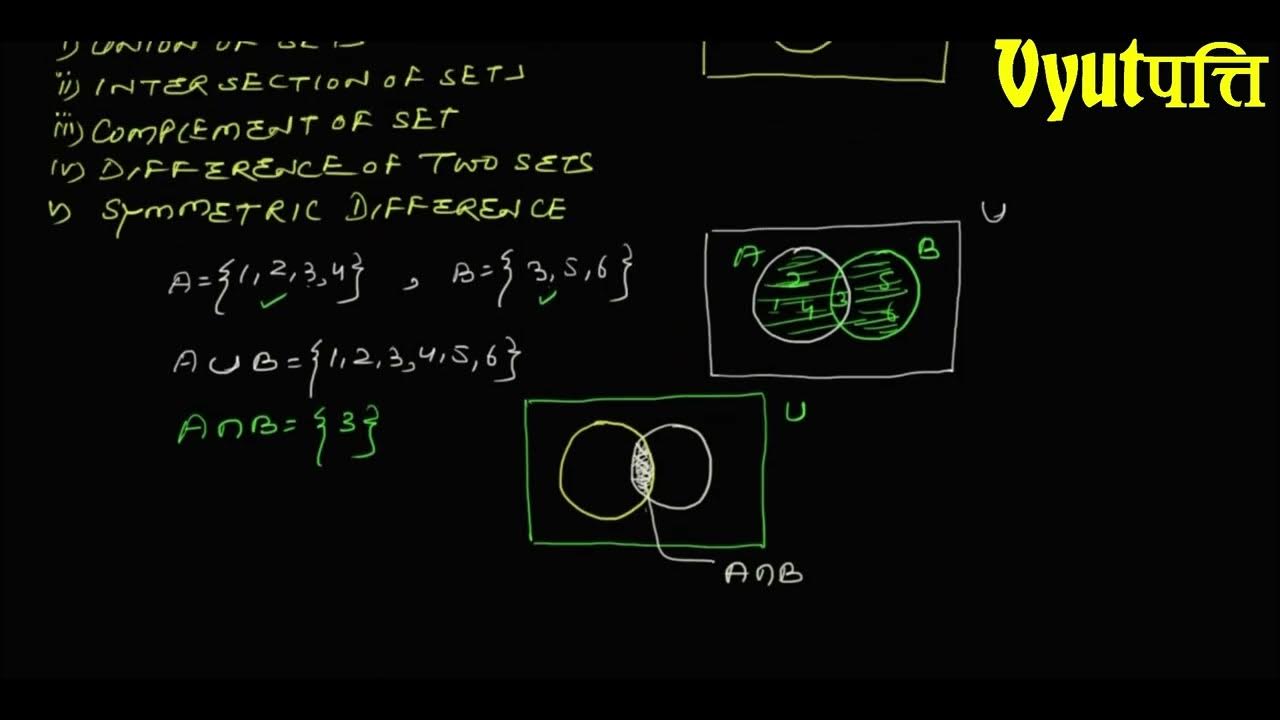 i) UNION OF SETS
ii) INTERSECTION OF SETS
iii) COMPLEMENT OF SET
iv) DIFFERENCE OF TWO SETS
v) SYMMETRIC DIFFERENCE
Vyutपत्ति
A={1,2,3,4} , B={3,5,6}
A∪B={1,2,3,4,5,6}
A∩B={3}
U
A B
2 5
1 4 3 6
U
A∩B